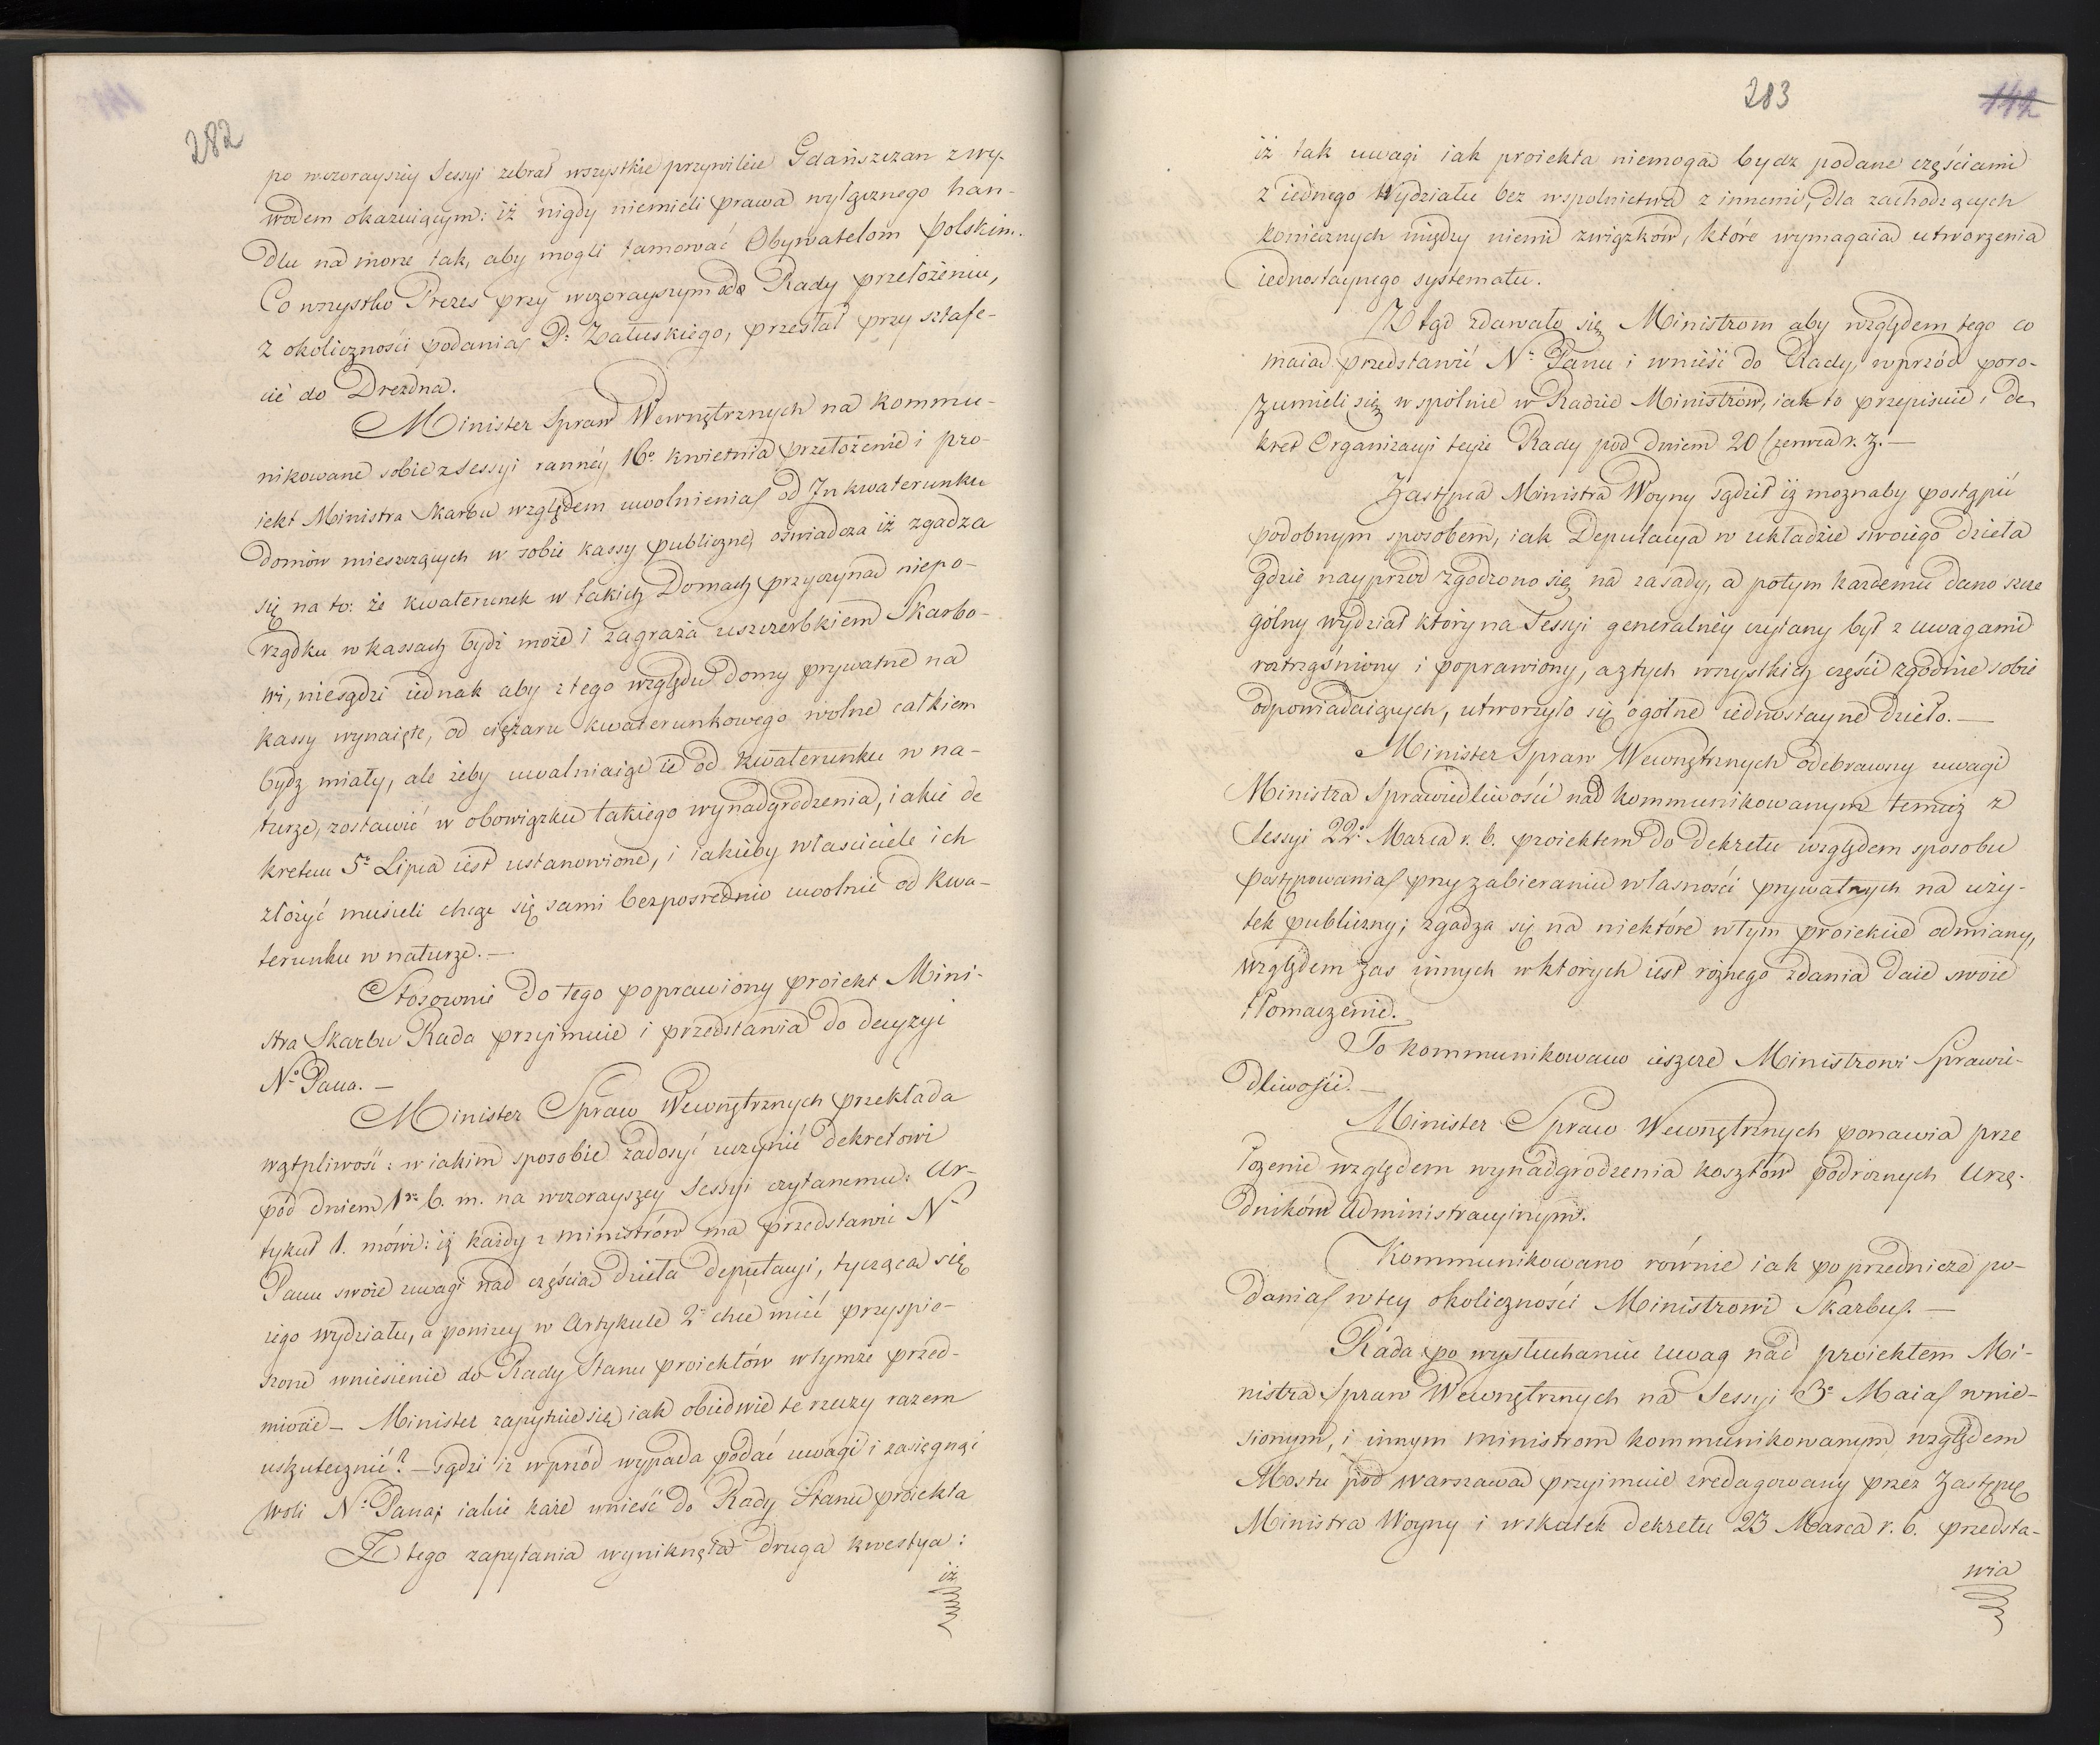 282
po wczorayszéy Sessyi zebrał wszystkie przywileie Gdańszczan z wy-
wodem okazuiącym: iż nigdy niemieli prawa wyłącznego han-
dlu na morze tak, aby mogli tamować Obywatelom Polskim.
Co wszystko Prezes przy wczorayszym od Rady przełożeniu,
z okoliczności podania P: Załuskiego, przesłał przy sztafe-
cie do Drezdna.
Minister Spraw Wewnętrznych na kommu-
nikowane sobie z Sessyi rannéy 16º kwietnia przełożenie i pro-
iekt Ministra Skarbu względem uwolnienia od Inkwaterunku
Domów mieszczących w sobie kassy publiczne, oświadcza iż zgadza
się na to: że kwaterunek w takich Domach przyczyną niepo-
rządku w kassach bydź może i zagraża uszczerbkiem Skarbo-
wi, niesądzi iednak aby z tego względu domy prywatne na
kassy wynaięte, od ciężaru kwaterunkowego wolne całkiem
bydz miały, ale żeby uwalniaiąc ie od kwaterunku w na-
turze, zostawić w obowiązku takiego wynadgrodzenia, iakie de
kretem 5º Lipca iest ustanowione, i iakieby właściciele ich
złożyć musieli chcąc się sami bezpośrednio uwolnić od kwa-
terunku w naturze. —
Stosownie do tego poprawiony proiekt Mini-
stra Skarbu Rada przyimuie i przedstawia do decyzyi
Nº Pana. —
Minister Spraw Wewnętrznych przekłada
wątpliwość: w iakim sposobie zadosyć uczynić dekretowi
pod dniem 1º b. m. na wczorayszey Sessyi czytanemu: Ar-
tykuł 1. mówi: iż każdy z ministrów ma przedstawić Nº
Panu swoie uwagi nad częścią dzieła deputacyi, tyczącą się
iego wydziału, a poniżey w Artykule 2º chce mieć przyspie-
szone wniesienie do Rady Stanu proiektów w tymże przed-
miocie — Minister zapytuie się iak obiedwie te rzeczy razem
uskutecznić? — Sądzi iż wprzód wypada podać uwagi i zasięgnąć
woli Nº Pana; iakie każe wnieść do Rady Stanu proiekta
Z tego zapytania wyniknęła druga kwestya:
iż
283
142
iż tak uwagi iak proiekta niemogą bydz podane częściami
z iednego Wydziału bez wspolnictwa z innemi, dla zachodzących
koniecznych między niemi związków, które wymagaią utworzenia
iednostaynego systematu.
Ztąd zdawało się Ministrom aby względem tego co
maią przedstawić Nº Panu i wnieść do Rady, wprzód poro-
zumieli się wspólnie w Radzie Ministrów, iak to przepisuie de
kret Organizacyi teyże Rady pod dniem 20 Czerwca r. z. —
Zastępca Ministra Woyny sądził iż moznaby postąpić
podobnym sposobem, iak Deputacya w układzie swoiego dzieła
gdzie nayprzód zgodzono się na zasady, a potym każdemu dano szcze
gólny wydział który na Sessyi generalnéy czytany był z uwagami
roztrząśniony i poprawiony, a z tych wszystkich części zgodnie sobie
odpowiadaiących, utworzyło się ogólne iednostayne dzieło. —
Minister Spraw Wewnętrznych odebrawszy uwagi
Ministra Sprawiedliwości nad kommunikowanym temuż z
Sessyi 22º Marca r. b. proiektem do Dekretu względem sposobu
postępowania przy zabieraniu własności prywatnych na uży-
tek publiczny; zgadza się na niektóre w tym proiekcie odmiany,
względem zas innych w ktorych iest rożnego zdania daie swoie
tłomaczenie.
To kommunikowano ieszcze Ministrowi Sprawie-
dliwości. —
Minister Spraw Wewnętrznych ponawia prze
łożenie względem wynadgrodzenia kosztów podróznych Urzę-
dników Administracyinym.
Kommunikowano równie iak poprzednicze po-
dania w tey okoliczności Ministrowi Skarbu. —
Rada po wysłuchaniu uwag nad proiektem Mi-
nistra Spraw Wewnętrznych na Sessyi 3º Maia wnie-
sionym, i innym ministrom kommunikowanym względem
Mostu pod Warszawą przyimuie zredagowany przez Zastępcę
Ministra Woyny i w skutek dekretu 23 Marca r. b. przedsta-
wia